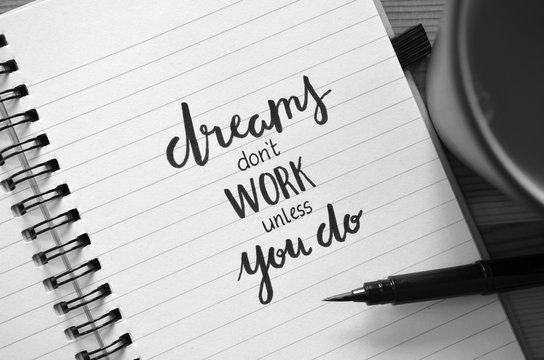 dreams
don't
WORK
unless
you do